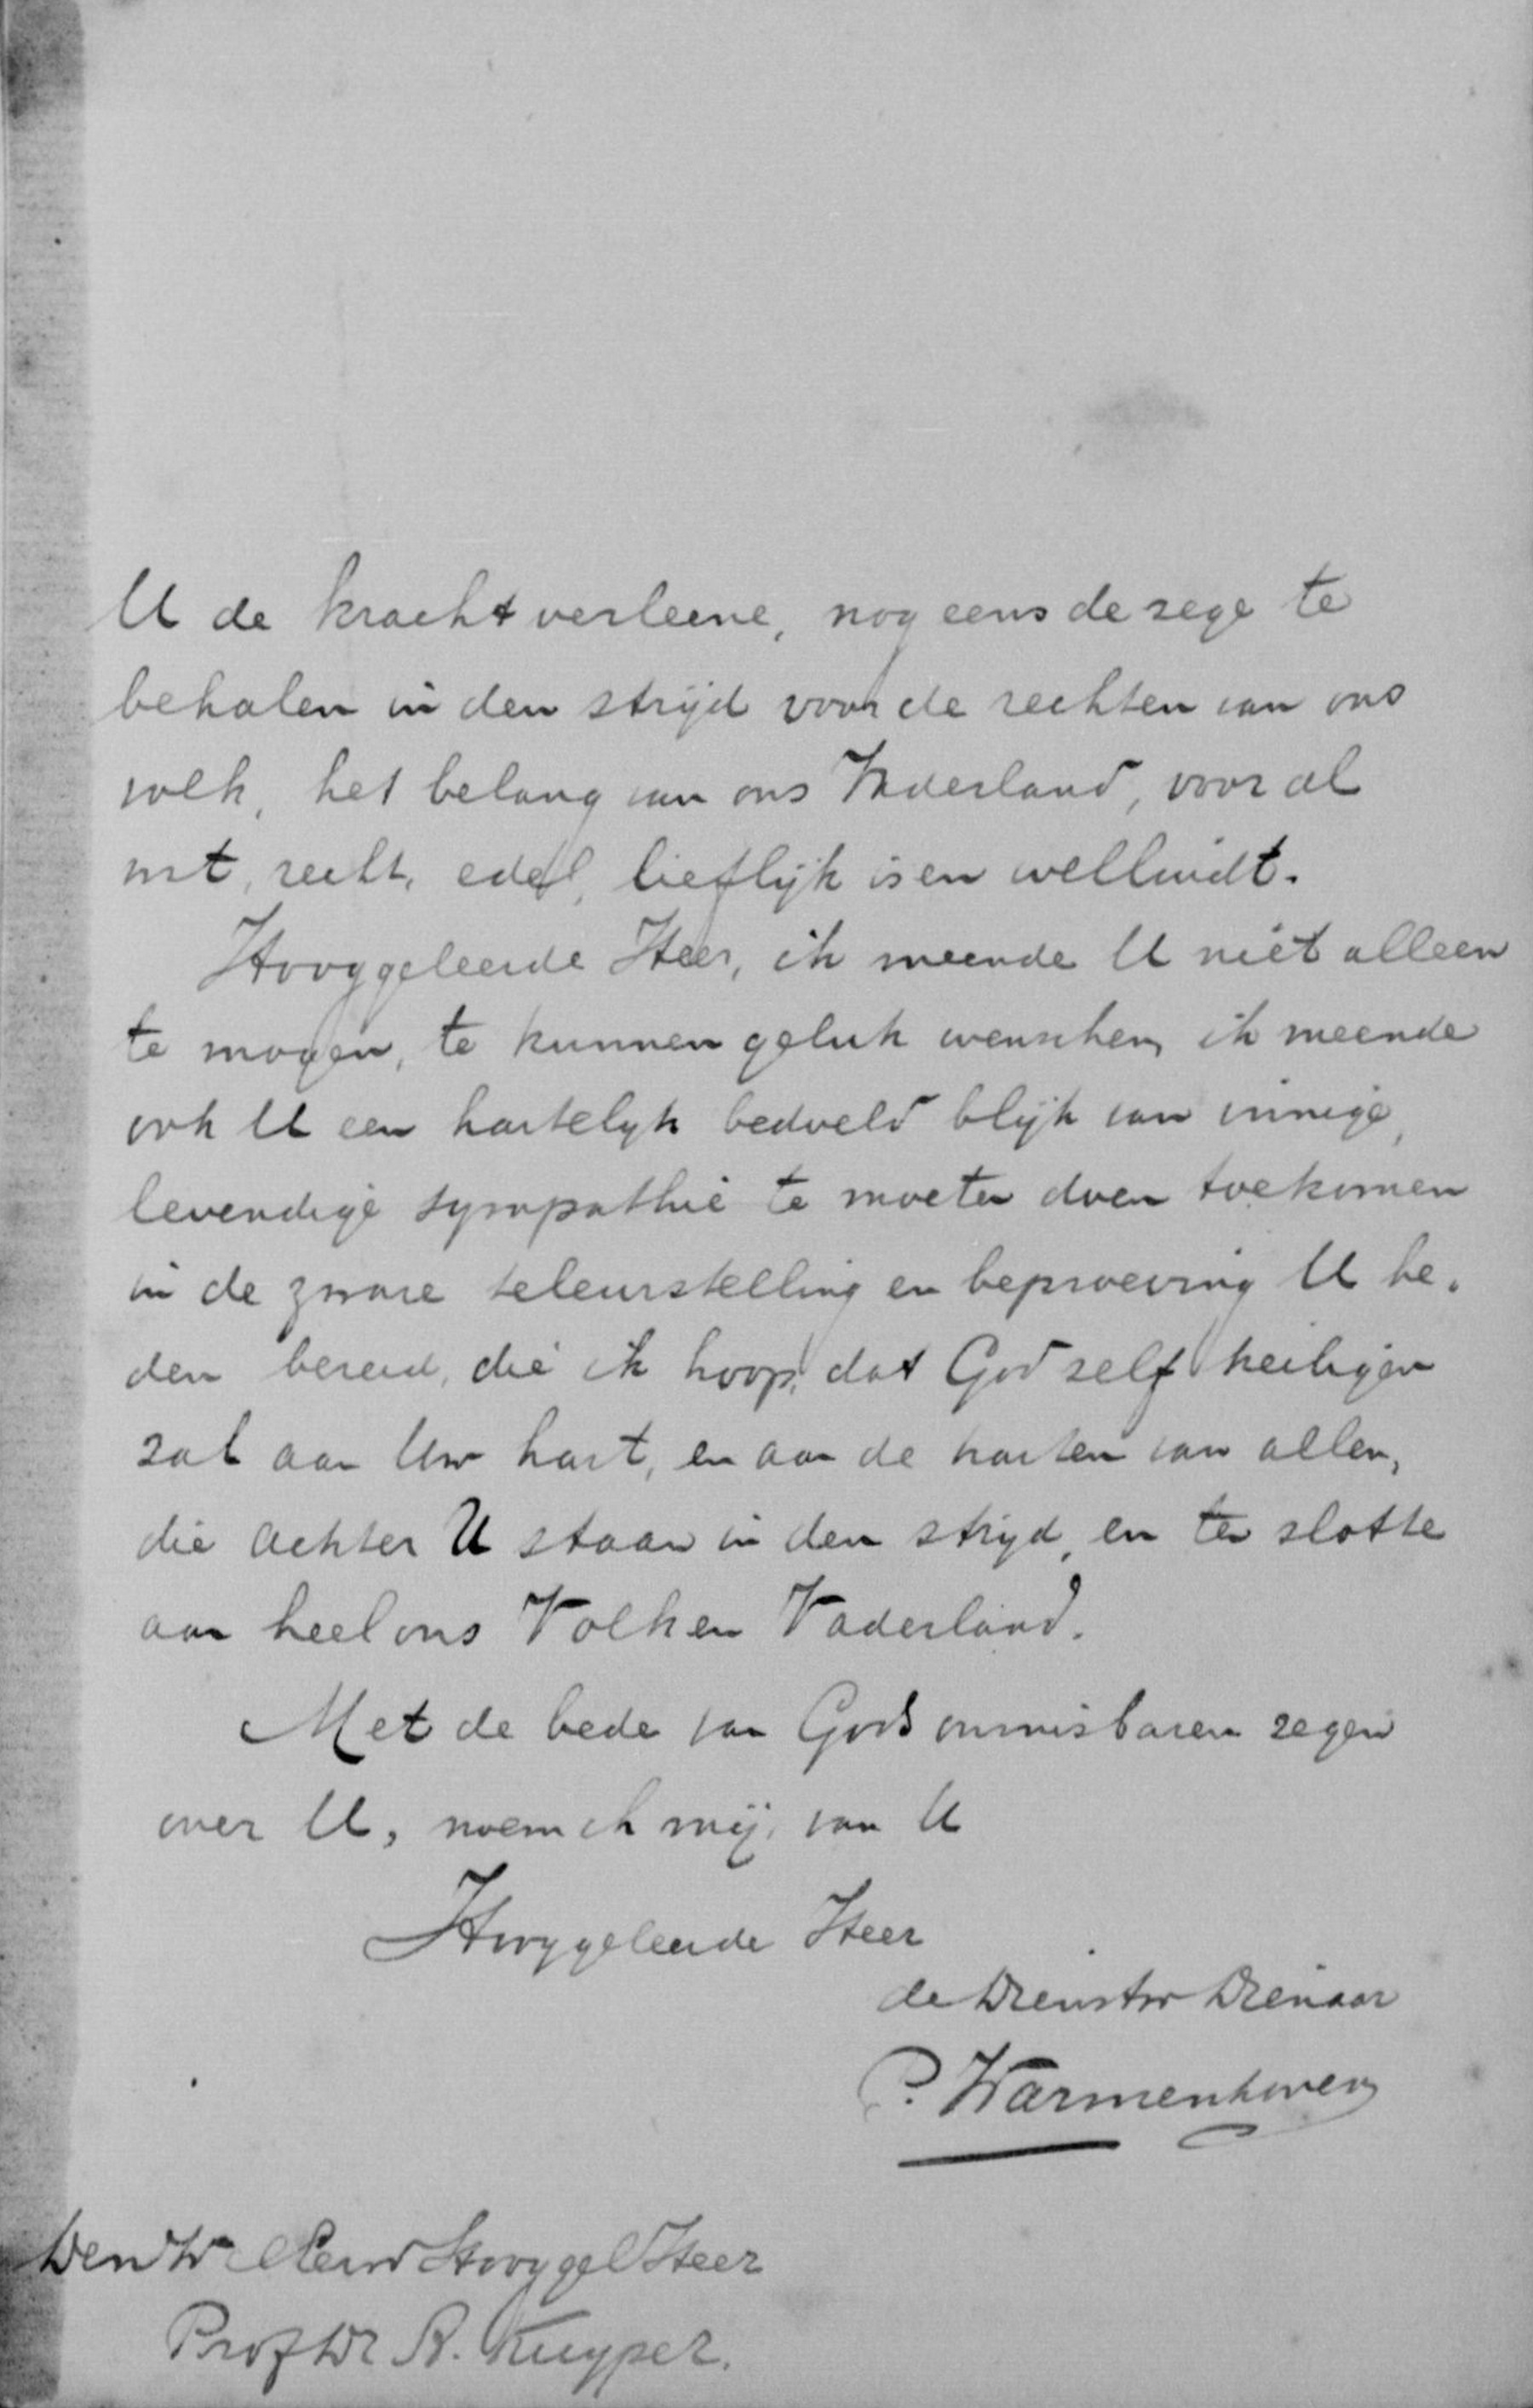 U de kracht verleene, nog eens de zege te
behalen in den strijd voor de rechten van ons
volk, het belang van ons Vaderland, voor al
wat, recht, edel, lieflijk is en welluidt.
Hooggeleerde Heer, ik meende U niet alleen
te mogen, te kunnen geluk wenschen, ik meende
ook U een hartelyk bedoeld blijk van innige,
levendige sympathie te moeten doen toekomen
in de zware teleurstelling en beproeving U he-
den bereid, die ik hoop, dat God zelf heiligen
zal aan Uw hart, en aan de harten van allen,
die achter U staan in den strijd, en ten slotte
aan heel ons Volk en Vaderland.
Met de bede van Gods onmisbaren zegen
over U, noem ik mij, van U
Hooggeleerde Heer
de Dienstw Dienaar
P. Warmenhoven
Den Hooggel Heer
Prof Dr A. Kuyper.